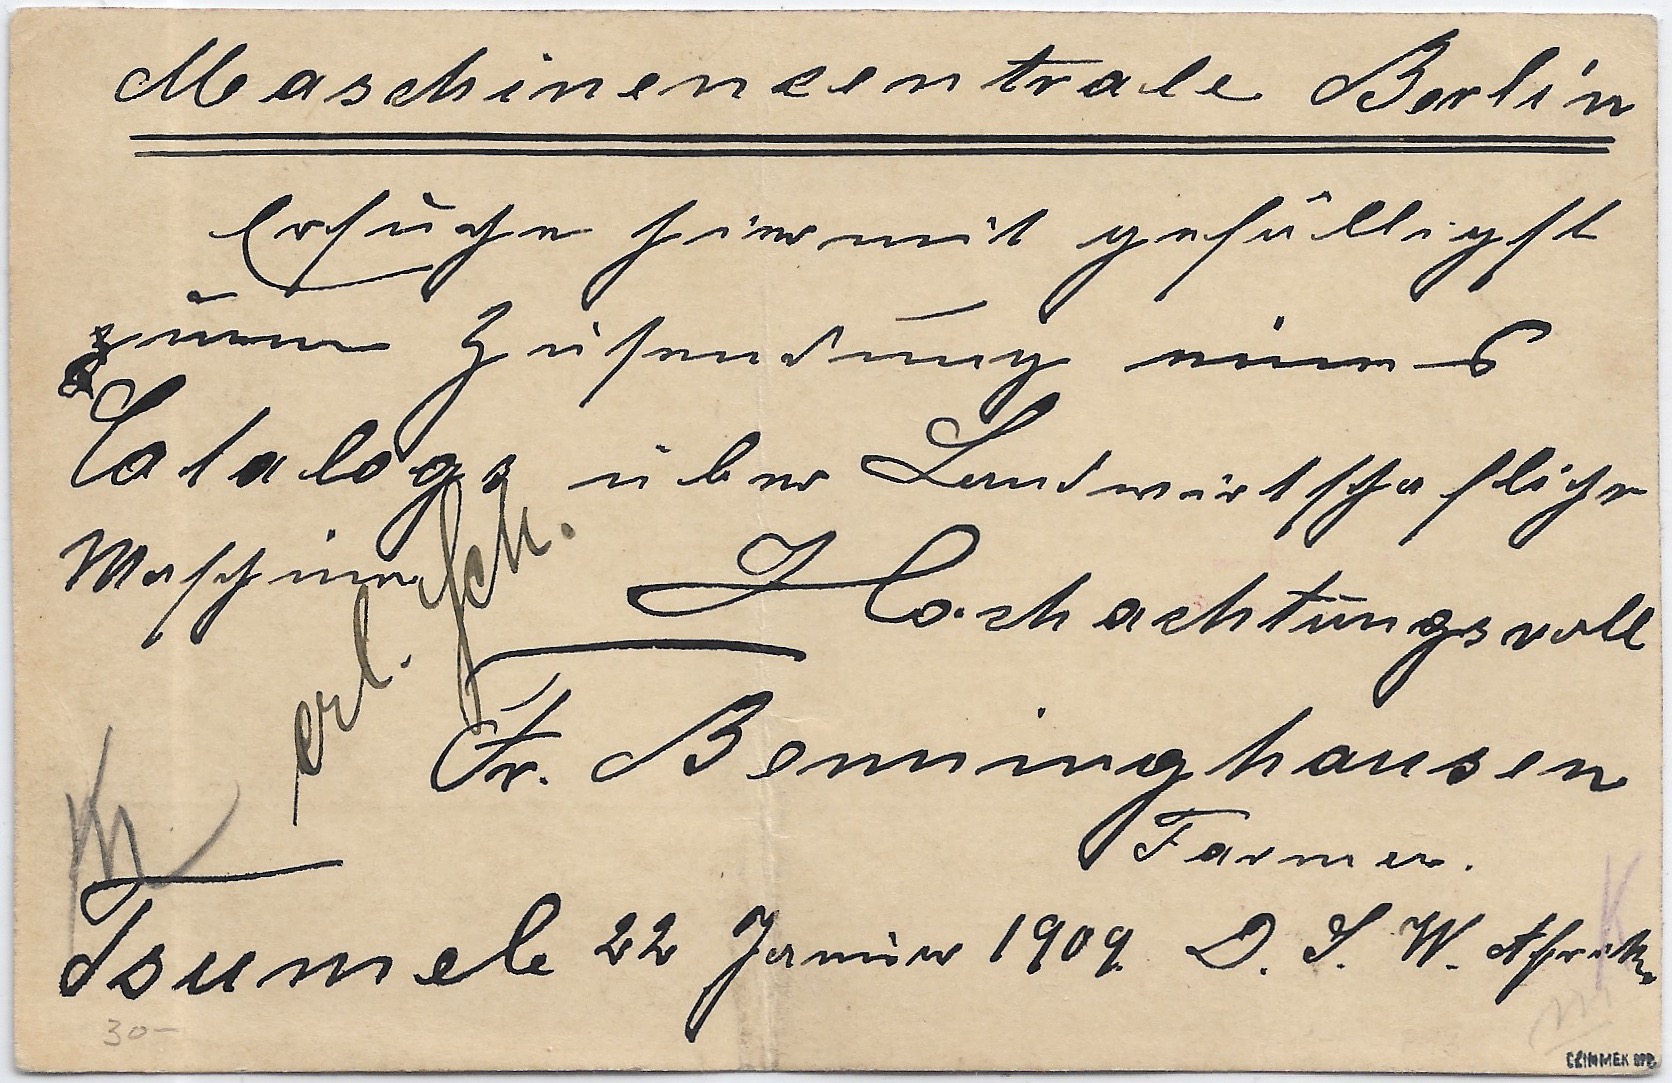 Maschinencentrale Berlin
Ersuche hiermit gefälligst
zum Zusendung eines
Catalogs über Landwirtschafliche
Maschinen
erl. Sch.
Hochachtungsvoll
Fr. Benninghausen
Farmer.
Tsumeb 22 Januar 1909. D. S. W. Afrika
K
30-